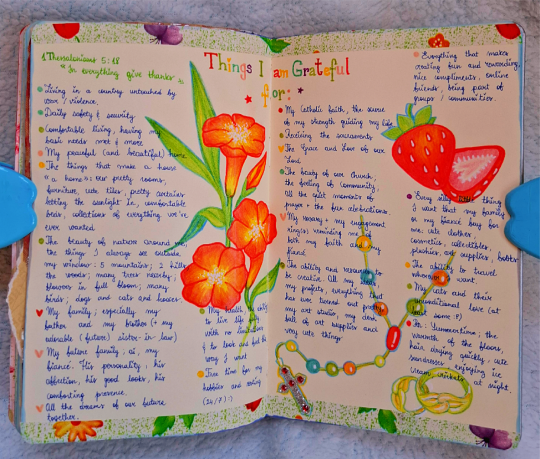 1 Thessalonians 5:18
"In everything give thanks".
Things I am Grateful
for:
Living in a country untouched by
war / violence.
Daily safety & security.
Comfortable living, having my
basic needs met & more.
My peaceful (and beautiful) home.
The things that make a house
a home: our pretty rooms,
furniture, cute tiles, pretty curtains
letting the sunlight in, comfortable
beds, collections of everything we've
ever wanted.
The beauty of nature around me,
the things I always see outside
my window: 5 mountains, 2 hills,
the woods, many trees nearby;
flowers in full bloom; many
birds; dogs and cats and horses.
My family; especially my
father and my brother (+ my
adorable (future) sister-in-law)
My future family; as, my
fiance. His personality, his
affection, his good looks, his
comforting presence.
All the dreams of our future
together.
My health the
to live life
with no
& to look and feel the
way I want
Free time for my
hobbies and
(24/7):)
My Catholic faith, the source
of my strength guiding my life.
Receiving the sacraments
The Grace and Love of our
Lord.
The beauty of our Church;
the feeling of community;
All the quiet moments of
prayer + the fun celebrations.
My rosary + my engagement
ring(s) reminding me of
both my faith and my
fiance.
The ability and resources to
be creative. All my
my projects, everything that
has ever turned out pretty
my art studio, my
full of art supplies and
very cute things.
Everything that makes
creating fun and rewarding,
nice compliments, online
friends, being part of
groups / communities.
Every silly little thing
I want that my family
or my fiance buy for
me: cute clothes,
cosmetics, collectibles,
plushies, art supplies, hobby
The ability to travel
wherever I want.
My cats and their
unconditional love (at
least some :P)
Summertime; the
warmth of the flowers,
hair drying quickly, cute
sundresses enjoying ice
cream, crickets at night.